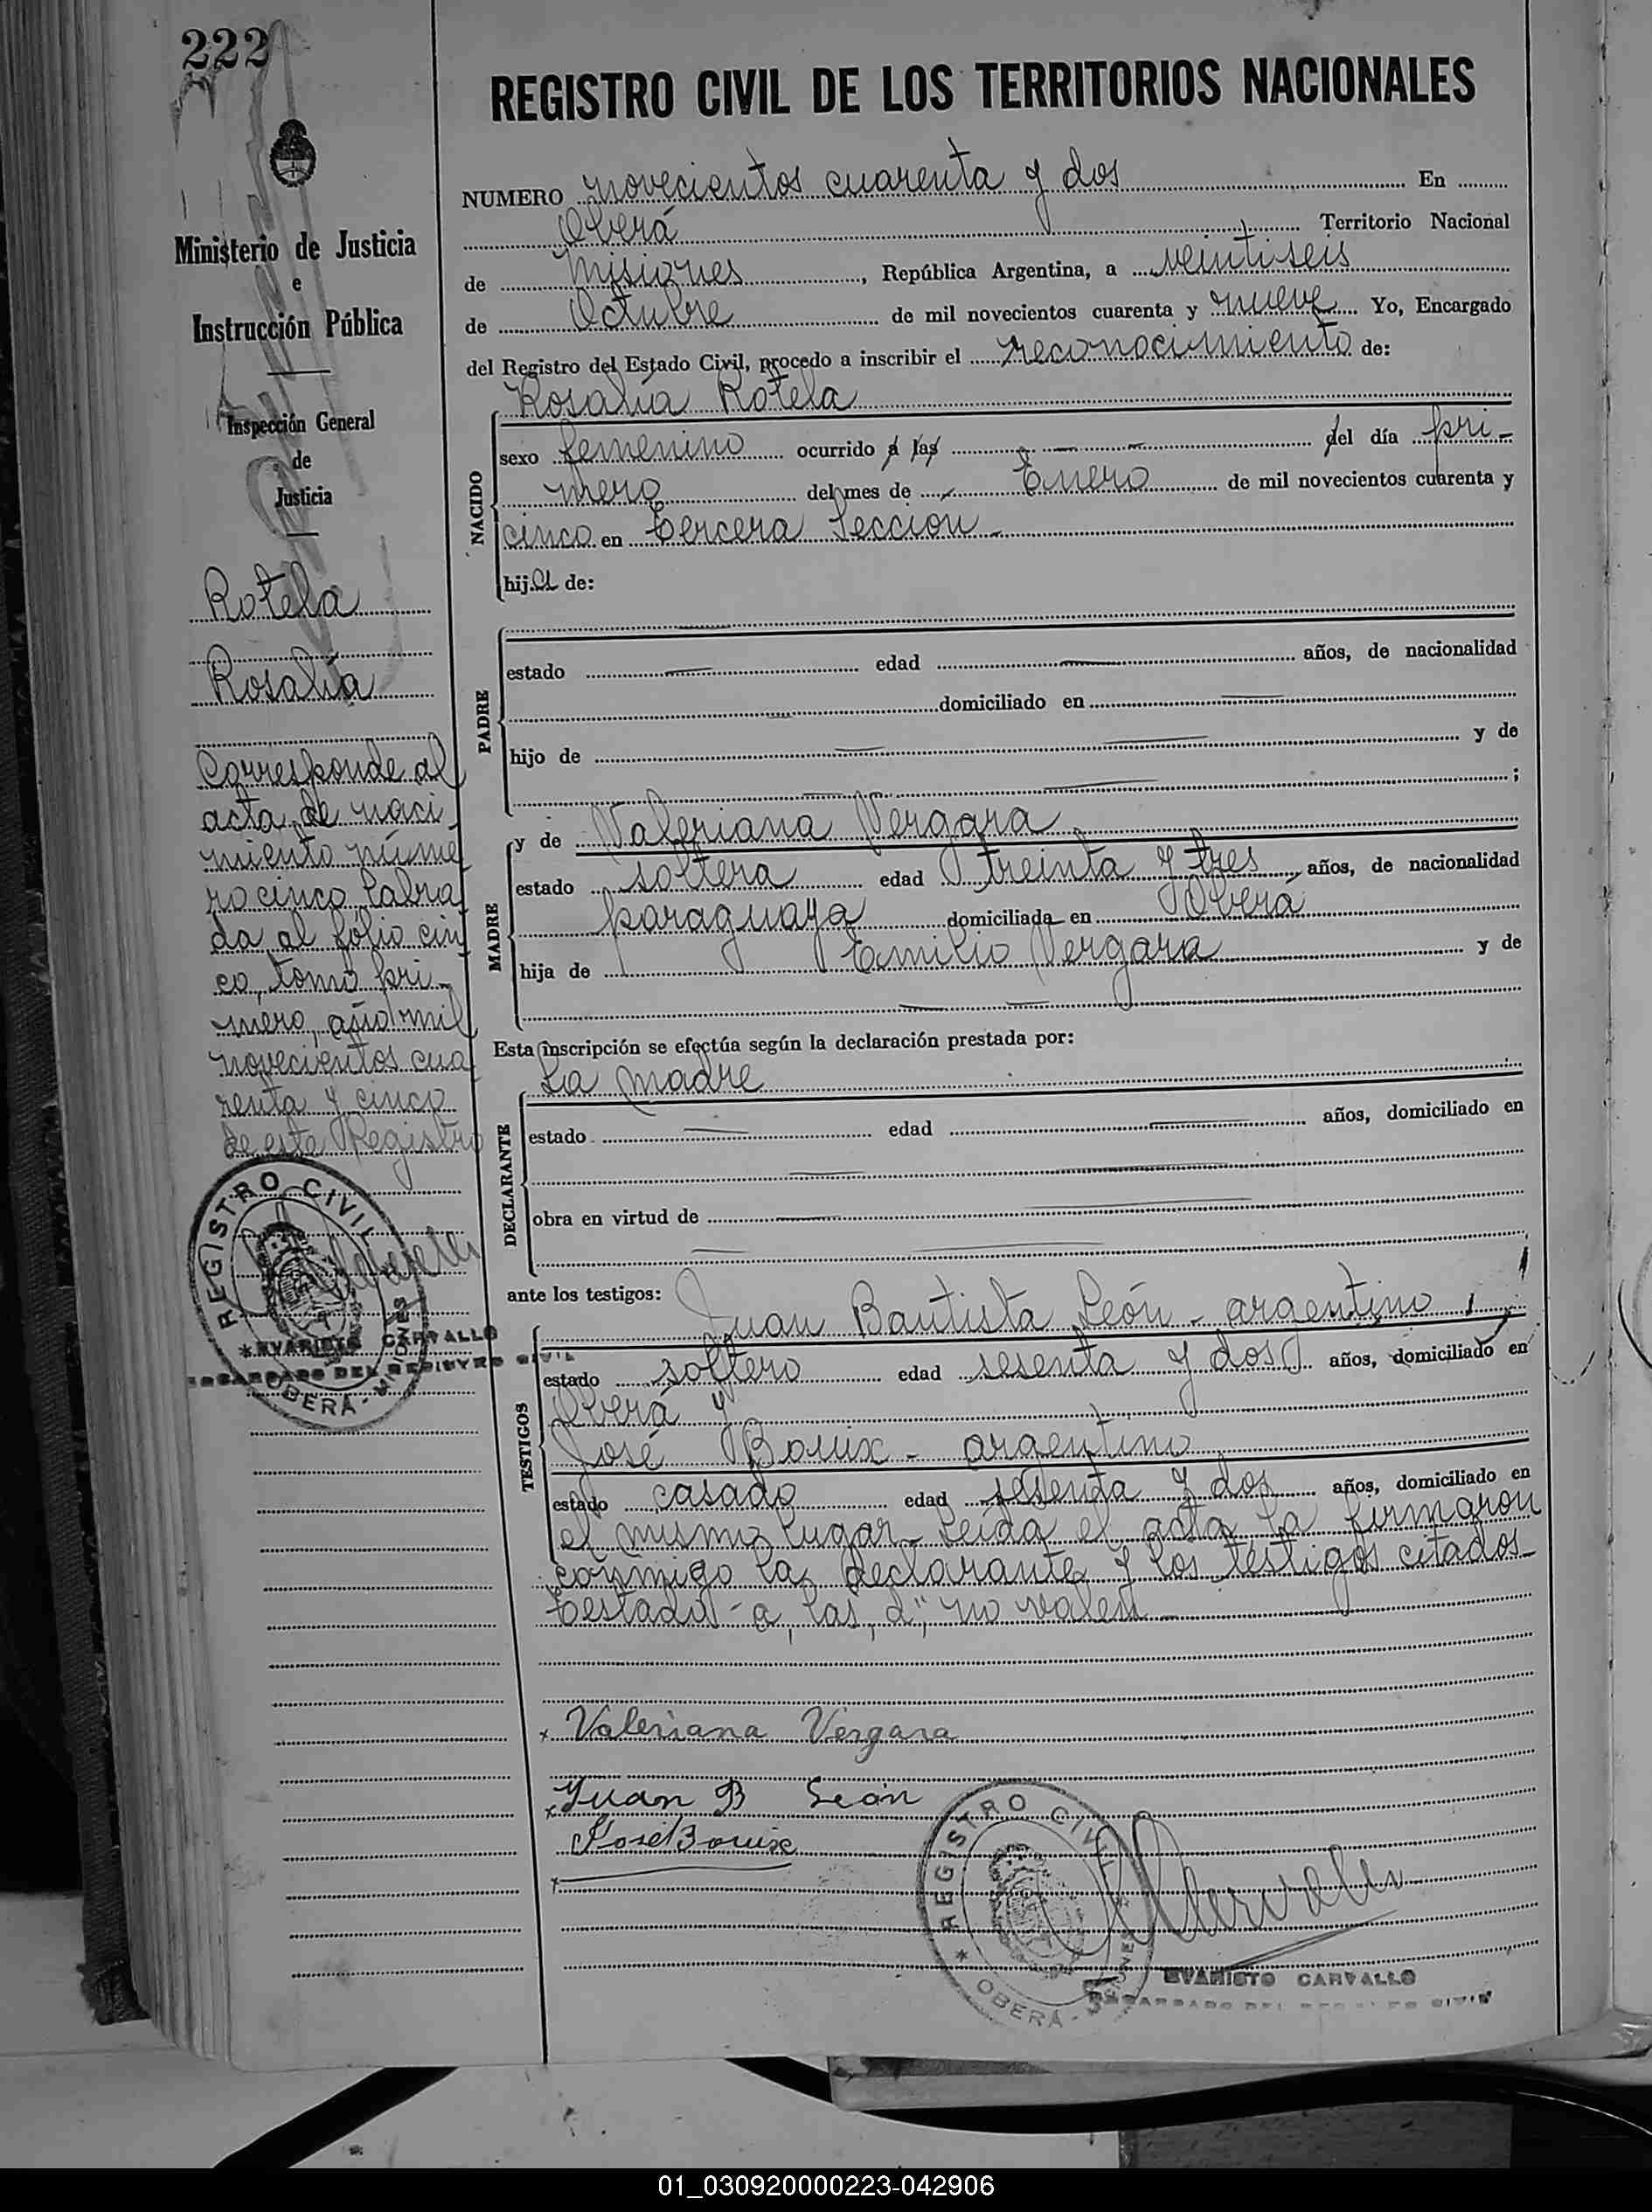 222
REGISTRO CIVIL DE LOS TERRITORIOS NACIONALES
Ministerio de Justicia
e
Instrucción Pública
Inspección General
de
Justicia
Rotela
Rosalía
Corresponde al
acta de naci
miento núme
ro cinco labra
da al fólio cin
co, tomo pri-
mero, año mil
novecientos cua
renta y cinco
de este Registro
REGISTRO CIVIL
OBERÁ - MISIONES
EVARISTO CARVALLO
ENCARGADO DEL REGISTRO CIVIL
NUMERO novecientos cuarenta y dos En
Oberá Territorio Nacional
de Misiones, República Argentina, a veintiseis
de Octubre de mil novecientos cuarenta y nueve Yo, Encargado
del Registro del Estado Civil, procedo a inscribir el reconocimiento de:
Rosalía Rotela
NACIDO
sexo femenino ocurrido a las del día pri-
mero del mes de Enero de mil novecientos cuarenta y
cinco en tercera Seccion -
hija de:
PADRE
estado edad años, de nacionalidad
domiciliado en
hijo de y de
;
MADRE
y de Valeriana Vergara
estado soltera edad treinta y tres años, de nacionalidad
paraguaya domiciliada en Oberá
hija de Emilio Vergara y de
Esta inscripción se efectúa según la declaración prestada por:
La madre
DECLARANTE
estado edad años, domiciliado en
obra en virtud de
ante los testigos: Juan Bautista León - argentino,
TESTIGOS
estado soltero edad sesenta y dos años, domiciliado en
Oberá y
José Bouix - argentino
estado casado edad sesenta y dos años, domiciliado en
el mismo lugar - Leída el acta la firmaron
conmigo la declarante y los testigos citados -
testado - a, las, d", no valen -
x Valeriana Vergara
x Juan B León
José Bouix
x
REGISTRO CIVIL
OBERÁ - MISIONES
EVARISTO CARVALLO
ENCARGADO DEL REGISTRO CIVIL
01_030920000223-042906